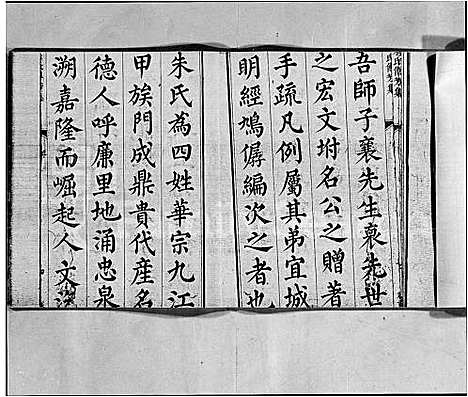 吾師子襄先生裒先世
之宏文坿名公之贈著
手疏凡例屬其弟宜城
明經鳩僝編次之者也
朱氏為四姓華宗九江
甲族門成鼎貴代産名
德人呼廉里地涌忠泉
溯嘉隆而崛起人文